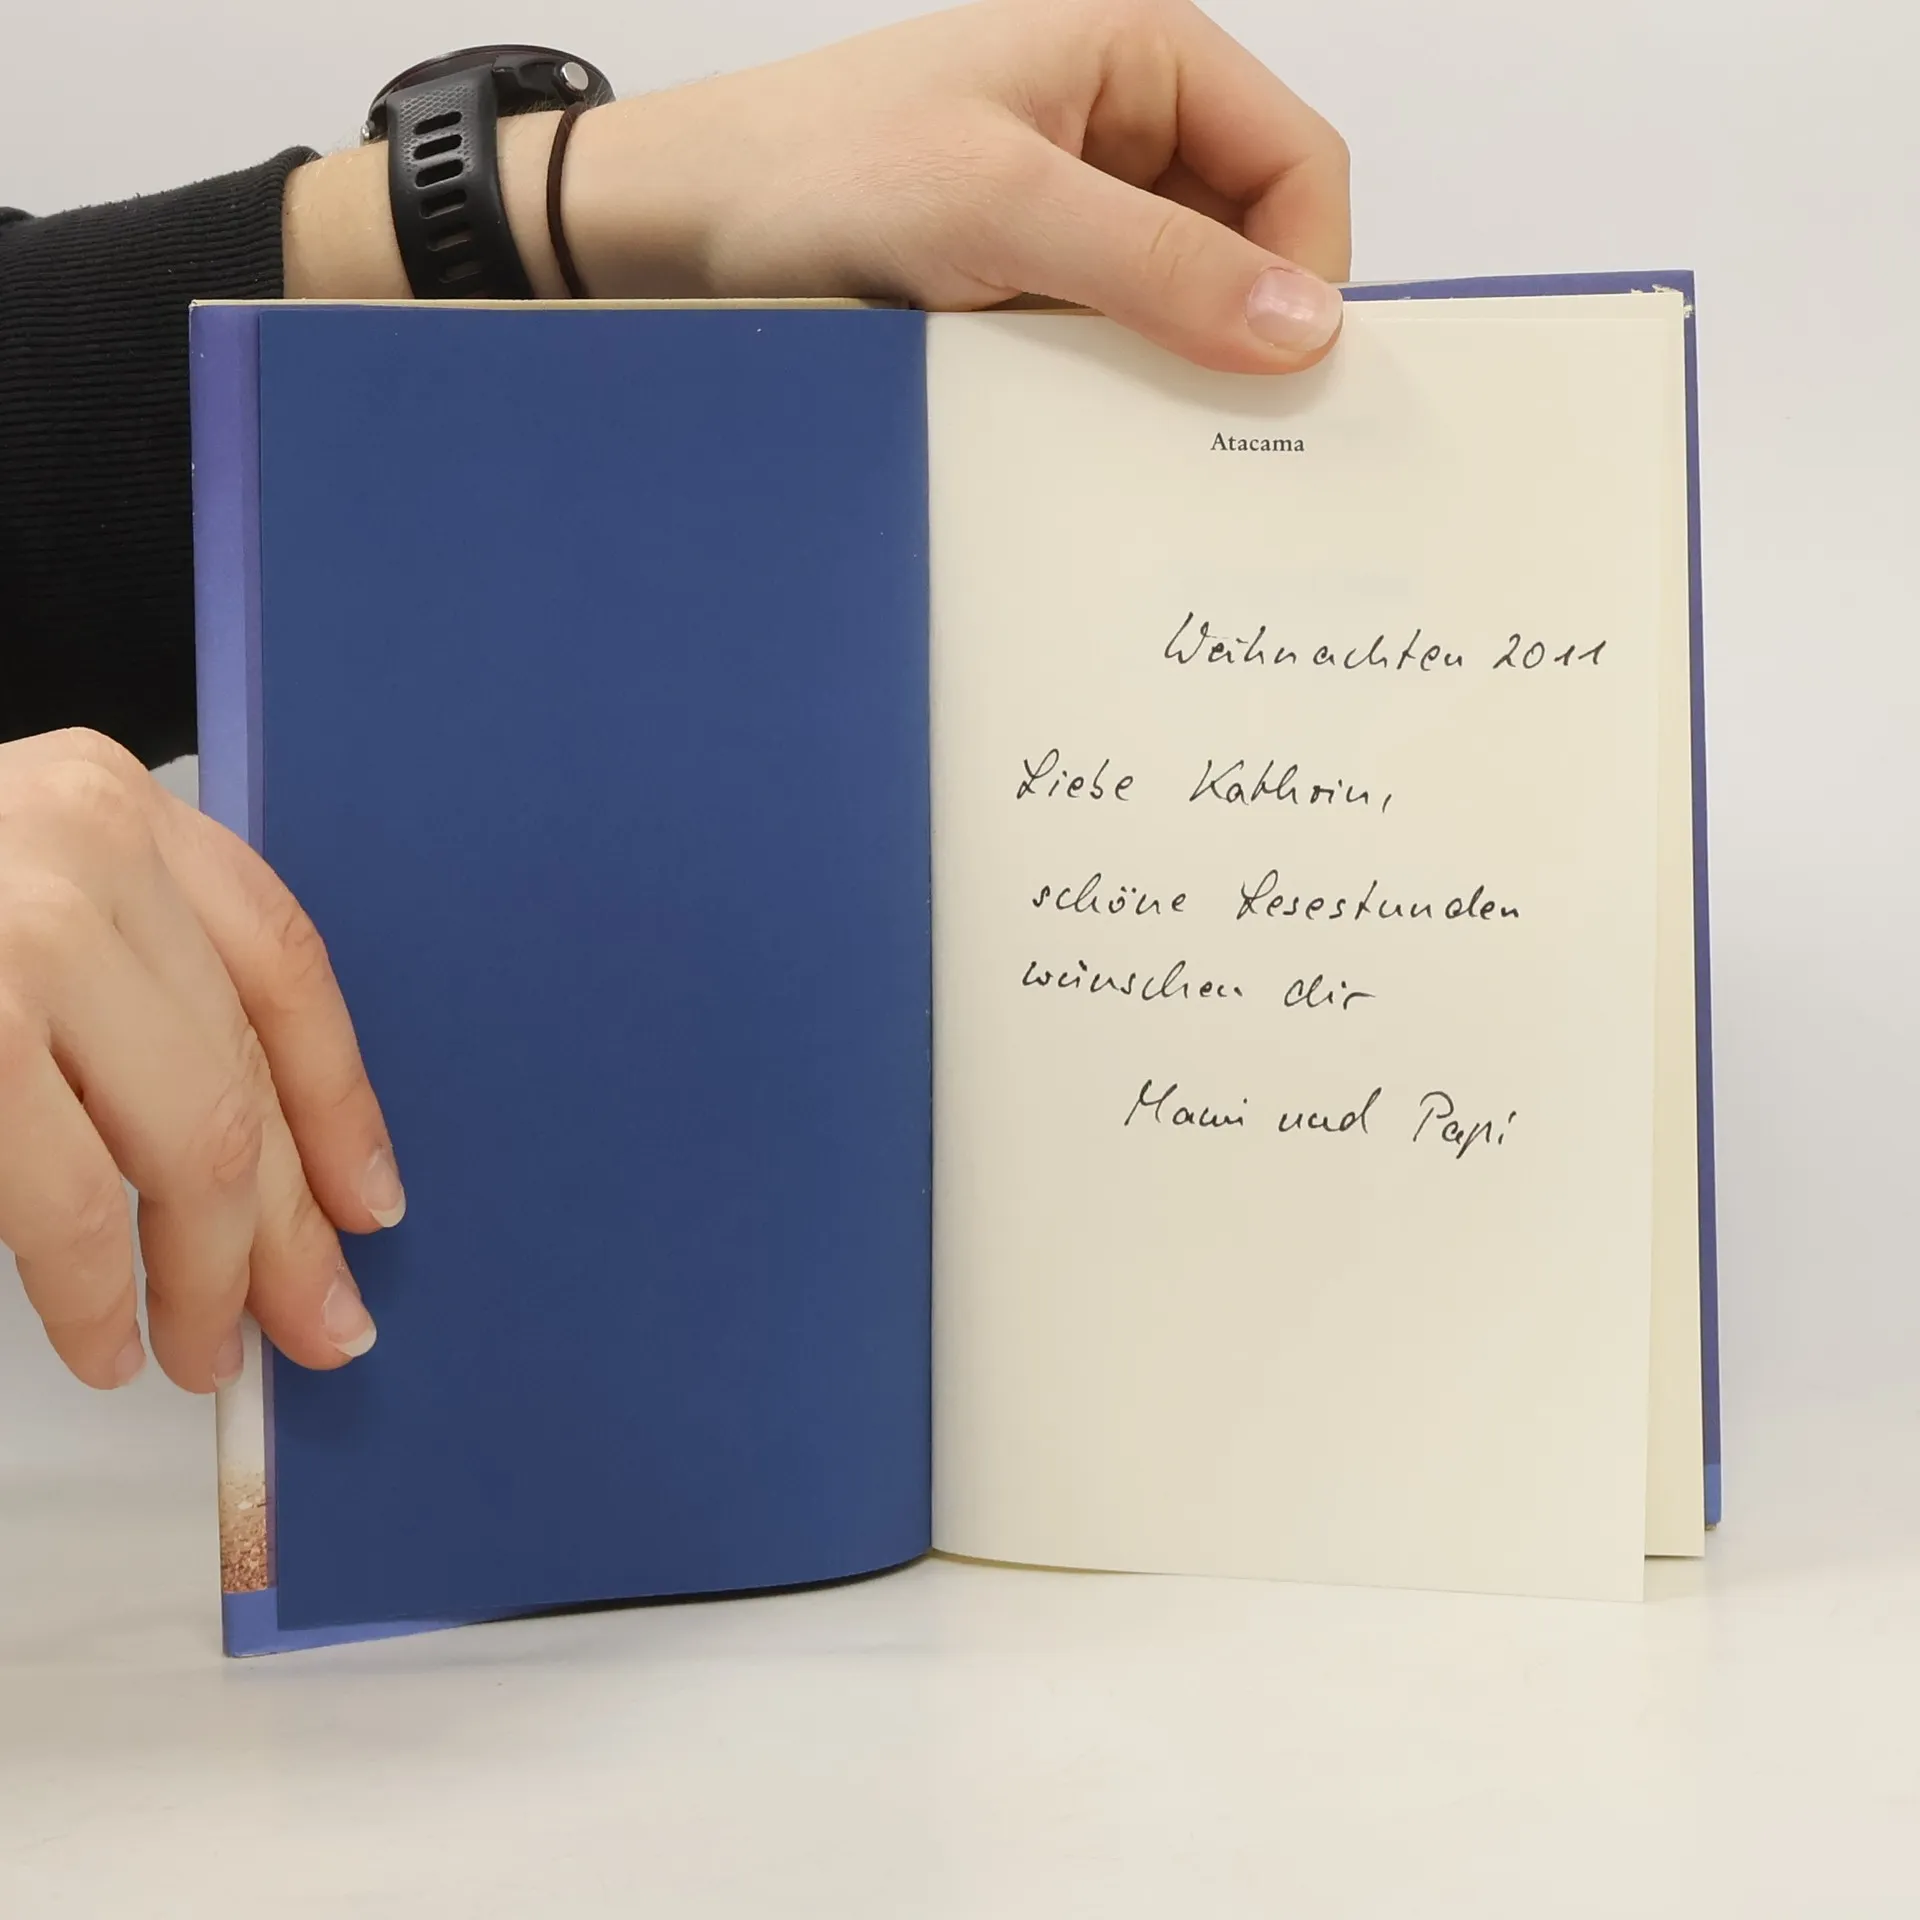 Atacama
Weihnachten 2011
Liebe Kathrin,
schöne Lesestunden
wünschen dir
Mami und Papi